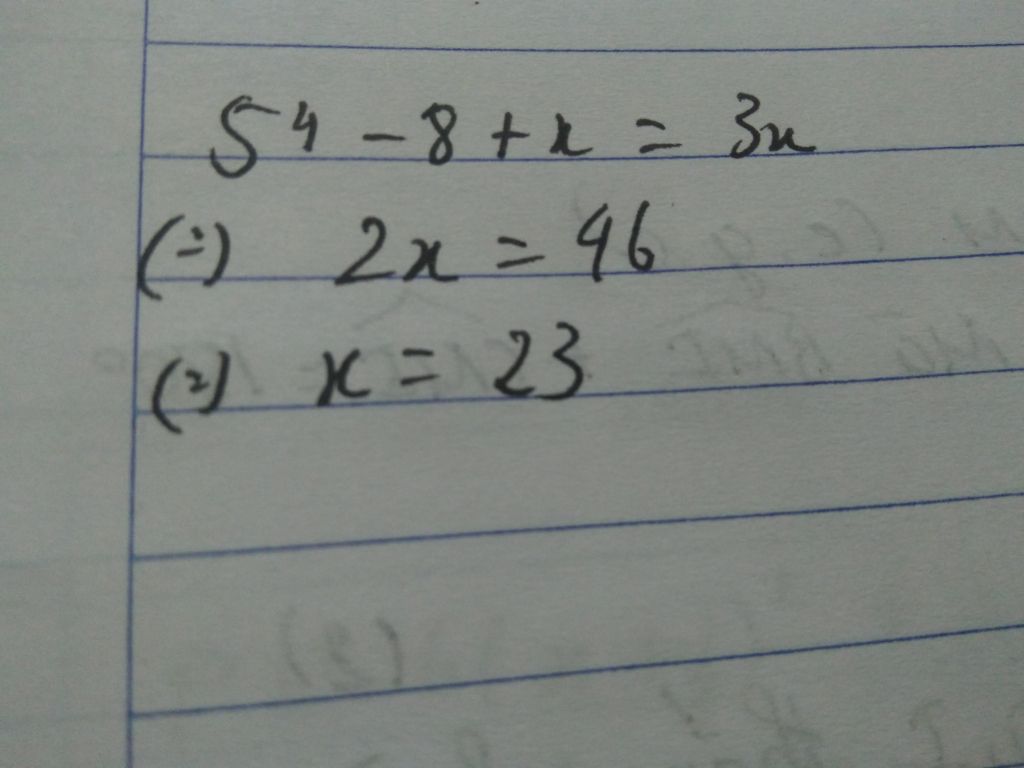 54 - 8 + x = 3x
(=) 2x = 46
(=) x = 23